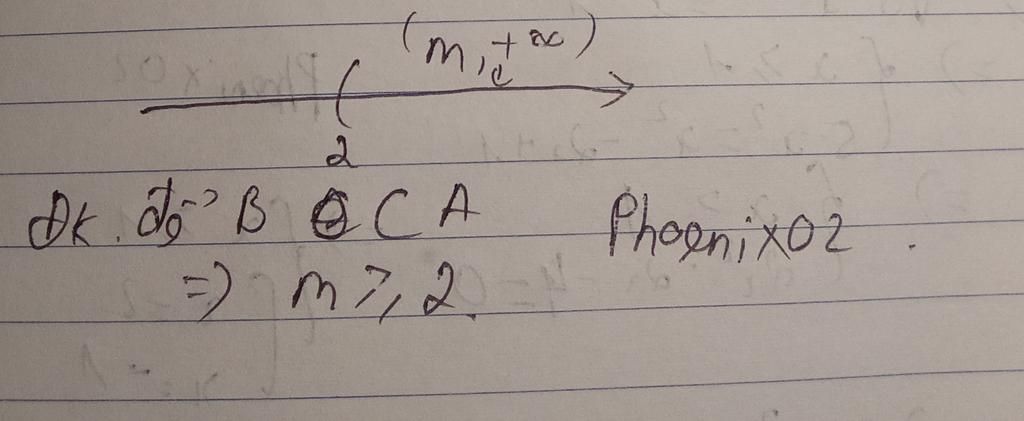 (m, +∞)
(
2
Đk. để B ⊂ A Phoenix02.
=> m ⩾ 2.